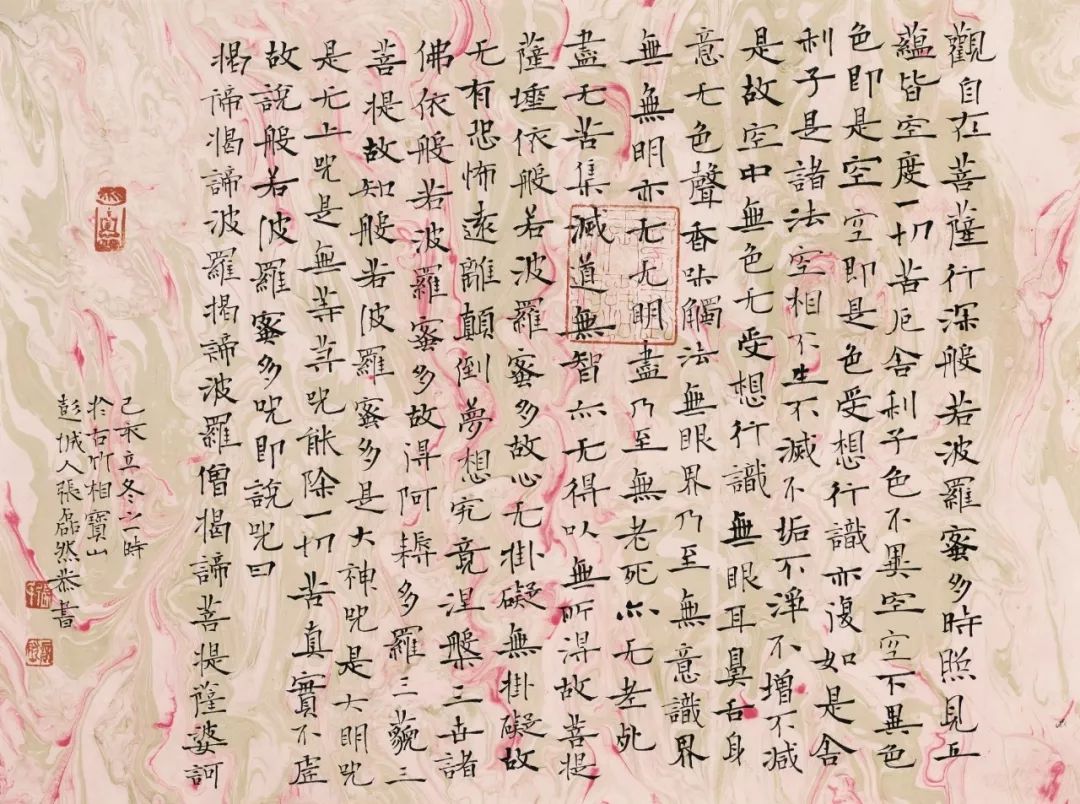 觀自在菩薩行深般若波羅蜜多時照見五
蘊皆空度一切苦厄舍利子色不異空空不異色
色即是空空即是色受想行識亦復如是舍
利子是諸法空相不生不滅不垢不淨不增不減
是故空中無色无受想行識無眼耳鼻舌身
意无色聲香味觸法無眼界乃至無意識界
無無明亦无无明盡乃至無老死亦无老死
盡无苦集滅道無智亦无得以無所得故菩提
薩埵依般若波羅蜜多故心无掛礙無掛礙故
无有恐怖遠離顛倒夢想究竟涅槃三世諸
佛依般若波羅蜜多故得阿耨多羅三藐三
菩提故知般若波羅蜜多是大神咒是大明咒
是无上咒是無等等咒能除一切苦真實不虛
故說般若波羅蜜多咒即說咒曰
揭諦揭諦波羅揭諦波羅僧揭諦菩提薩婆訶
己亥立冬之一時
於古竹相寶山
彭城人張磊然恭書